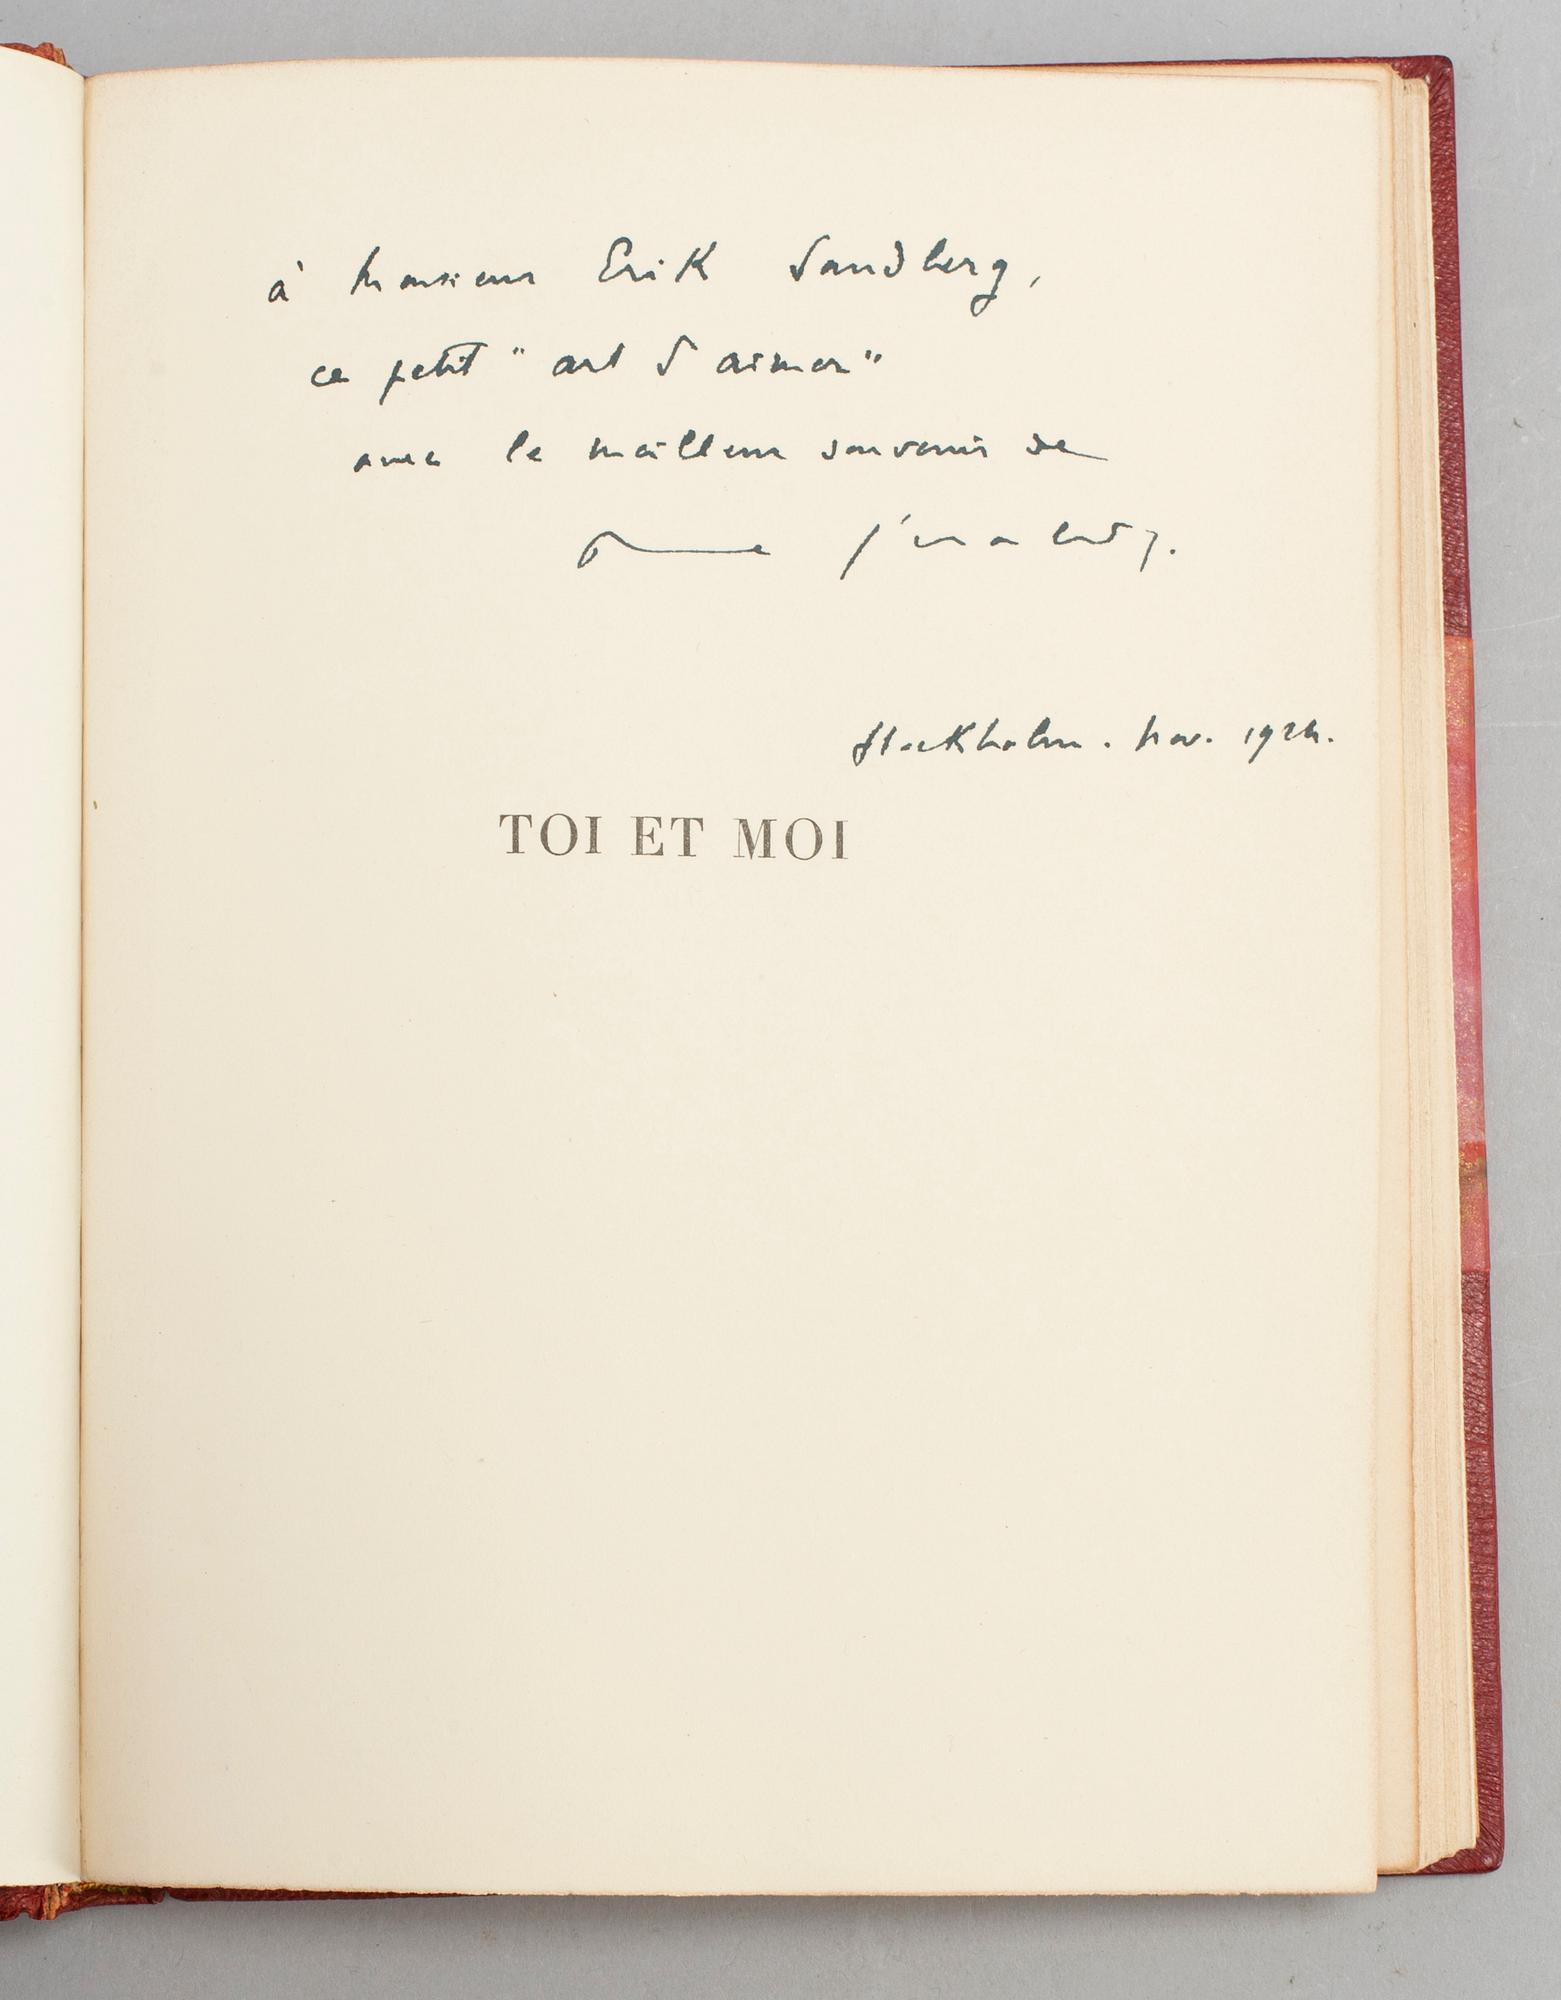 à Monsieur Erik Sandberg,
ce petit "art d'aimer"
avec le meilleur souvenir de
Géraldy.
Stockholm. Nov. 1924.
TOI ET MOI